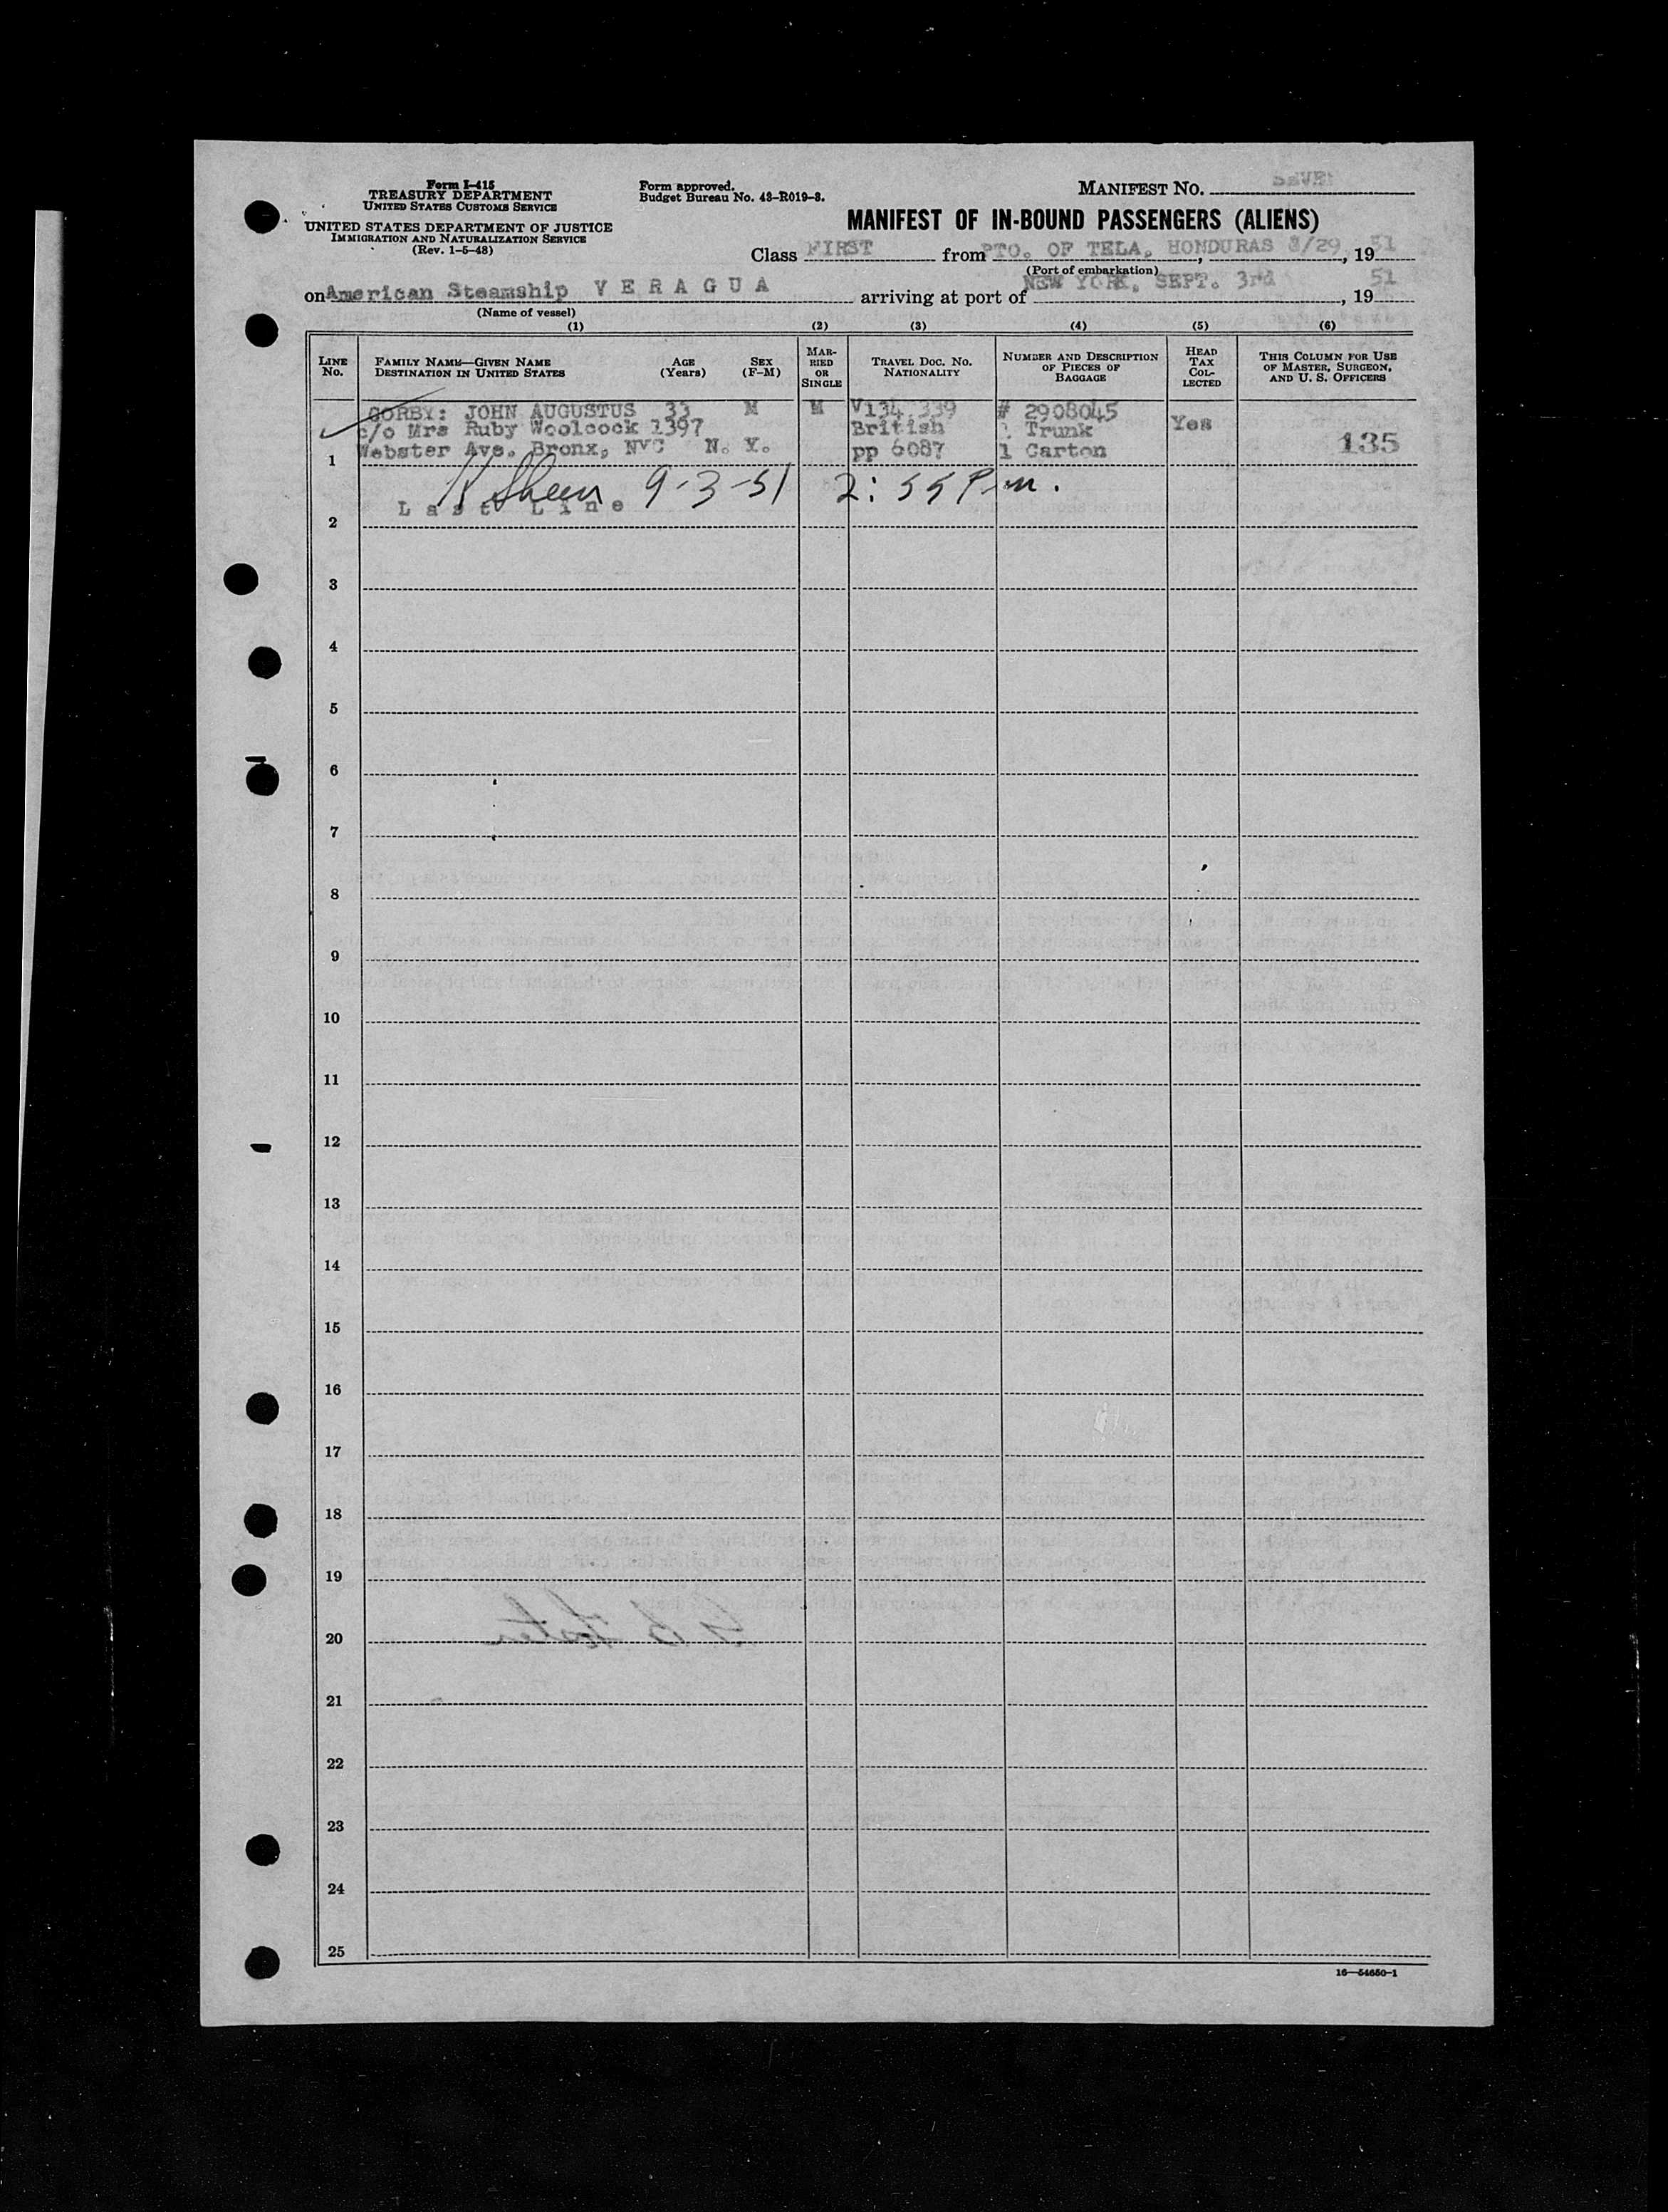 Form I-415
TREASURY DEPARTMENT
UNITED STATES CUSTOMS SERVICE
UNITED STATES DEPARTMENT OF JUSTICE
IMMIGRATION AND NATURALIZATION SERVICE
(Rev. 1-5-48)
Form approved.
Budget Bureau No. 43-R019-3.
MANIFEST NO. SEVEN
MANIFEST OF IN-BOUND PASSENGERS (ALIENS)
Class FIRST from PTO. OF TELA, HONDURAS 8/29, 1951
(Port of embarkation)
on American Steamship VERAGUA arriving at port of NEW YORK, SEPT. 3rd, 1951
(Name of vessel)
(1) (2) (3) (4) (5) (6)
LINE No. FAMILY NAME—GIVEN NAME DESTINATION IN UNITED STATES AGE (Years) SEX (F-M) MARRIED OR SINGLE TRAVEL DOC. NO. NATIONALITY NUMBER AND DESCRIPTION OF PIECES OF BAGGAGE HEAD TAX COLLECTED THIS COLUMN FOR USE OF MASTER, SURGEON, AND U. S. OFFICERS
GORBY: JOHN AUGUSTUS 33 M M V134,339 # 2908045
c/o Mrs Ruby Woolcock 1397 British Trunk Yes
Webster Ave. Bronx, NYC N. Y. pp 6087 1 Carton 135
1
Sheen 9-3-51 2:55 P.m.
Last Line
2
3
4
5
6
7
8
9
10
11
12
13
14
15
16
17
18
19
20
21
22
23
24
25
16—54650-1